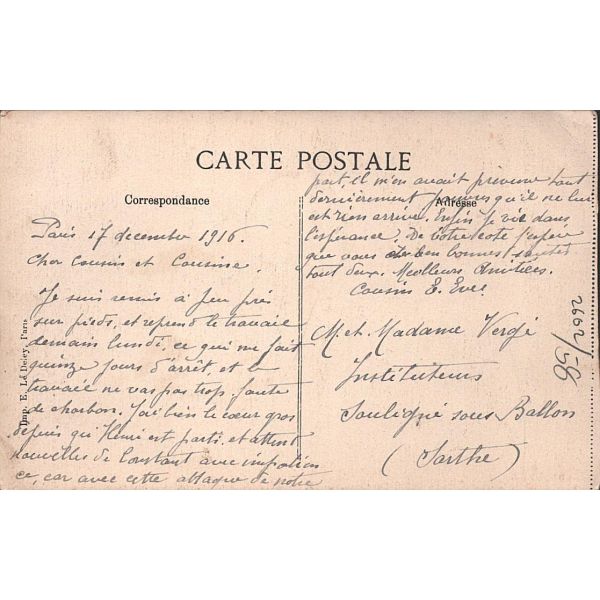 CARTE POSTALE
Correspondance
Adresse
Paris 17 decembre 1916.
Cher Cousins et Cousine.
Je suis remis à peu près
sur pieds, et reprend le travaie
demain lundi, ce qui me fait
quinze jours d'arrêt, et le
travaie ne vas pas trop faute
de charbon. J'ai bien le cœur gros
depuis qu'Henri est parti, et attent
nouvelles de Constant avec impatien
ce, car avec cette attaque de notre
part, il m'en avait prévenue tout
dernierement pourvus qu'il ne lui
est rien arrivé. Enfin je vie dans
l'espérance. De votre coté j'espère
que vous etes en bonnes santés
tout deux. Meilleurs Amitiées.
Cousin E. Eve
M. et Madame Vergé
Instituteurs
Souligné sous Ballon
(Sarthe)
2662/58
Imp. E. Le Deley, Paris